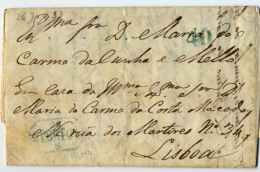 40
D. Maria do
Carmo da Cunha e Mello
Em casa da Illma Exma Sra D.
Maria do Carmo da Costa Macedo
Rua dos Martires No 34
Lisboa